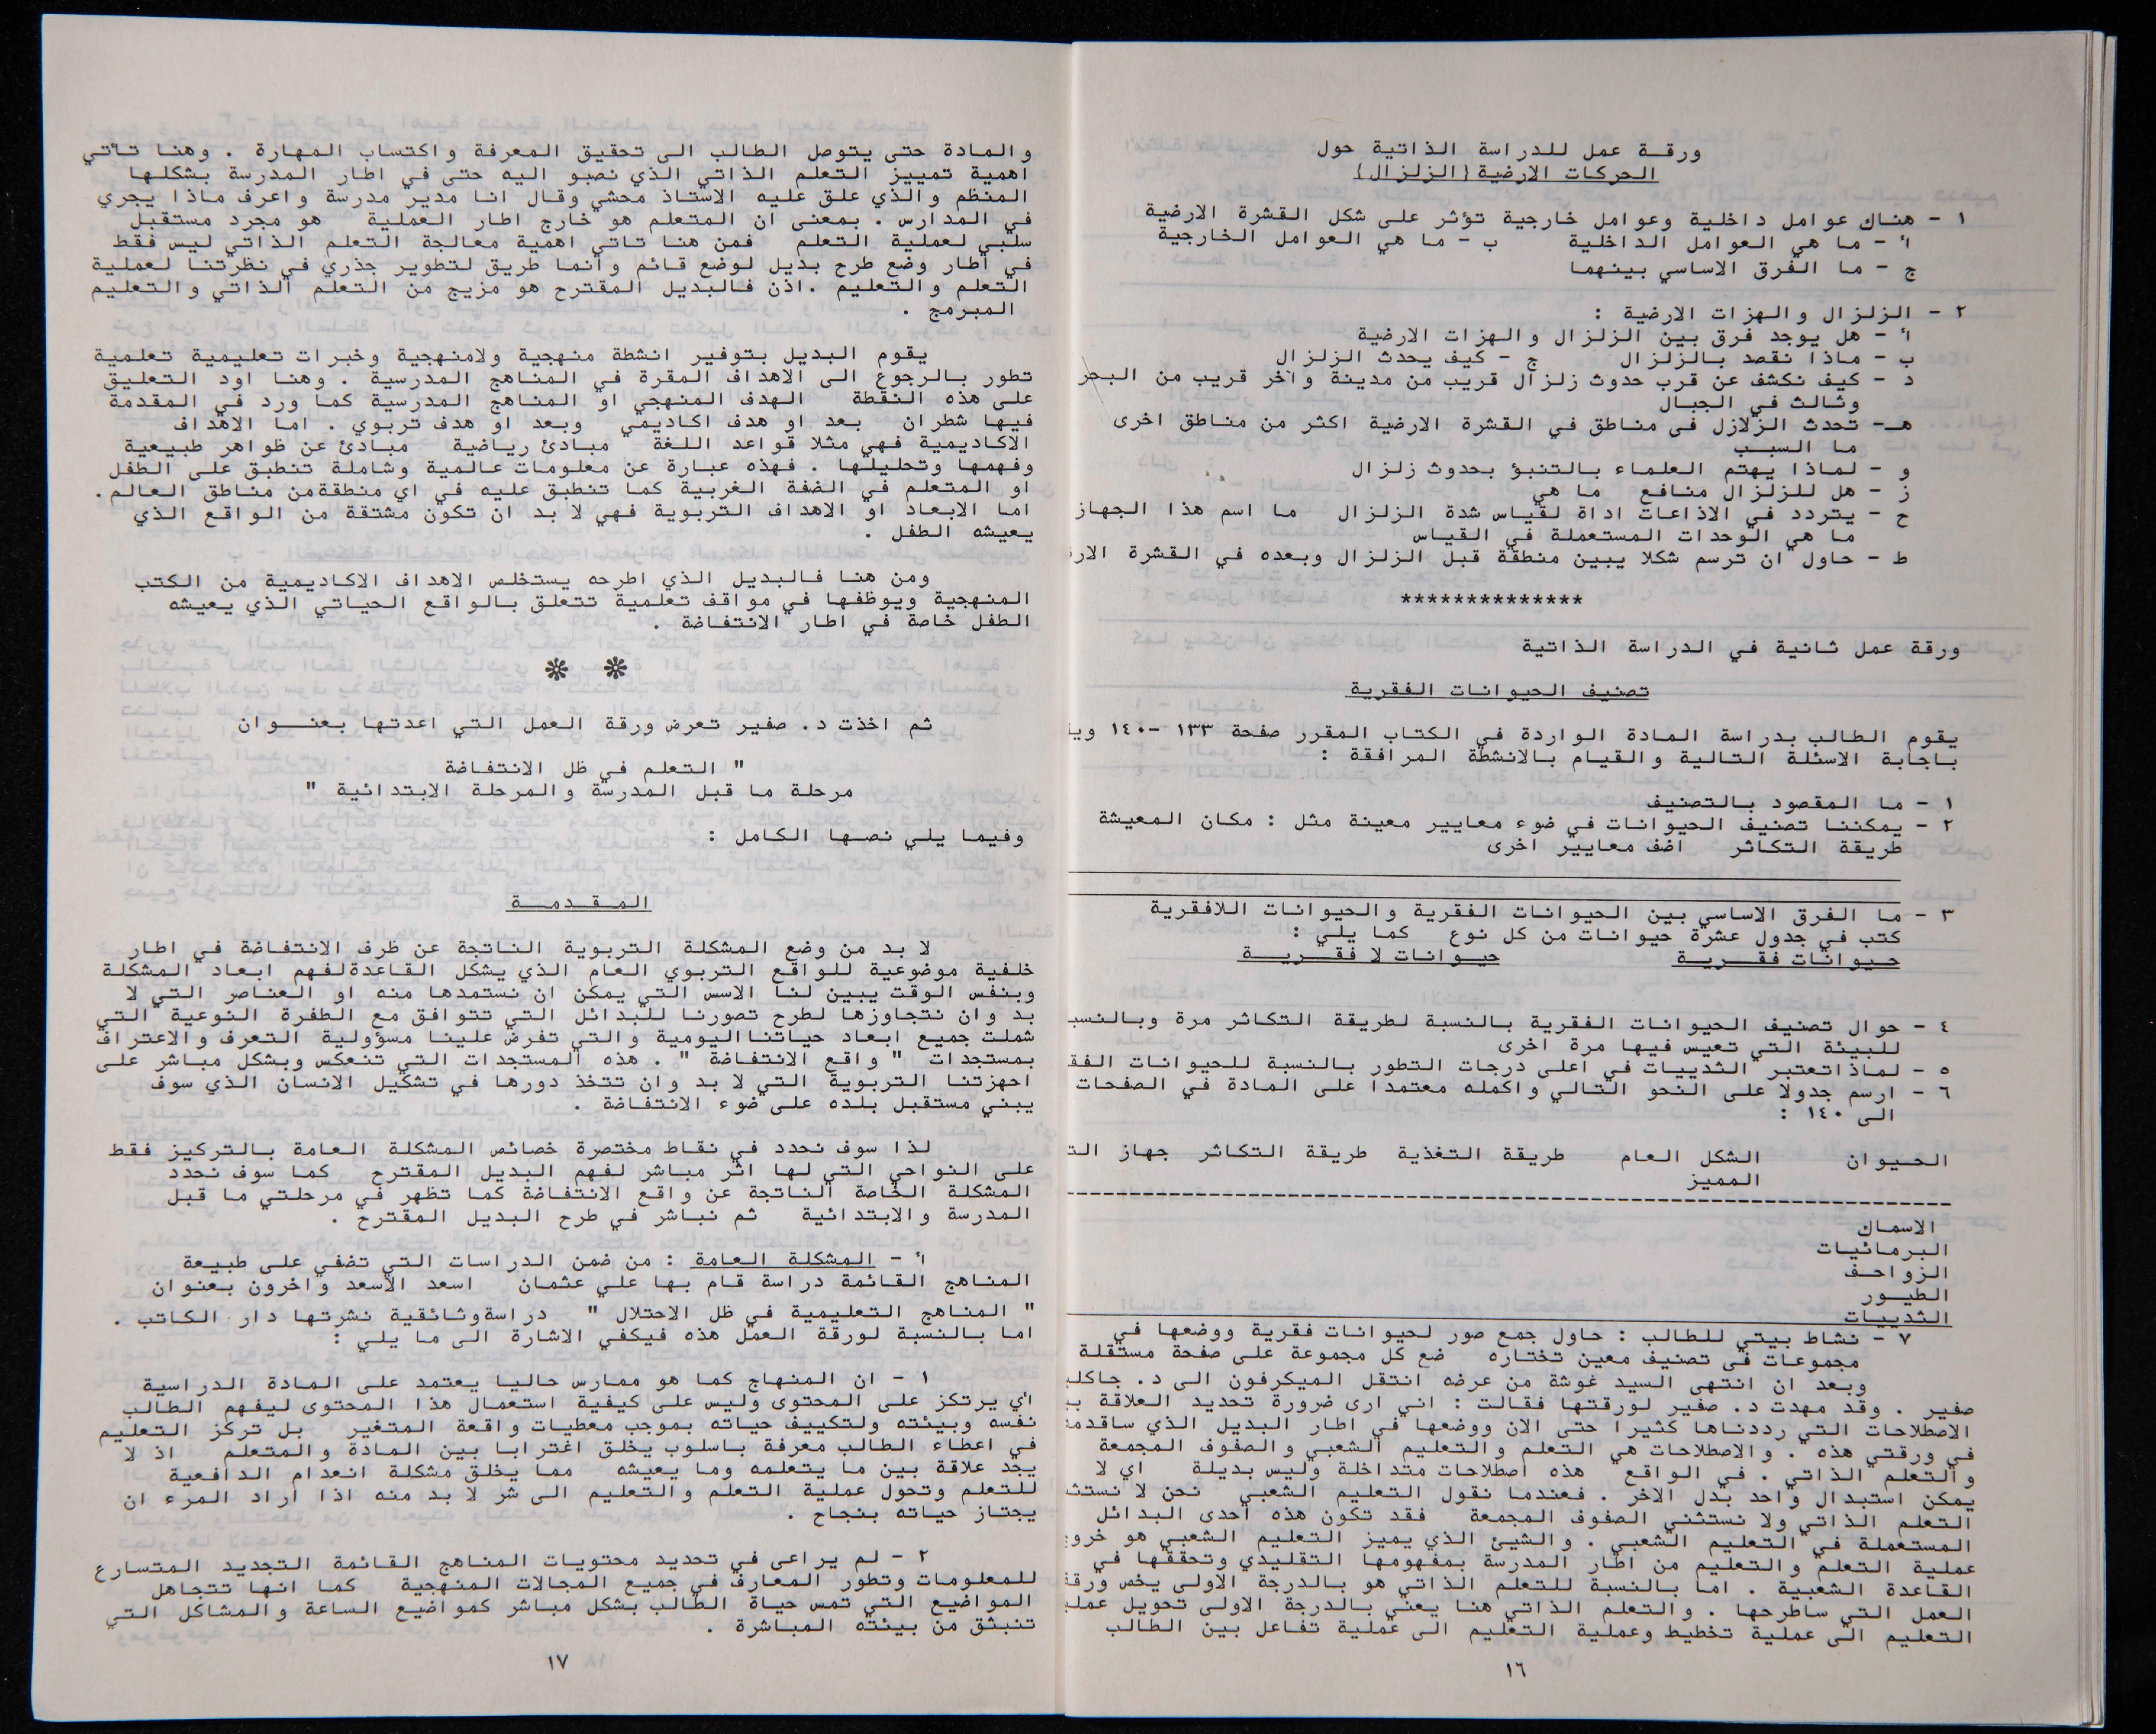 ورقة عمل للدراسة الذاتية حول
الحركات الارضية (الزلزال)
١ - هناك عوامل داخلية وعوامل خارجية تؤثر على شكل القشرة الارضية
أ - ما هي العوامل الداخلية ب - ما هي العوامل الخارجية
ج - ما الفرق الاساسي بينهما
٢ - الزلزال والهزات الارضية :
أ - هل يوجد فرق بين الزلزال والهزات الارضية
ب - ماذا نقصد بالزلزال ج - كيف يحدث الزلزال
د - كيف نكشف عن قرب حدوث زلزال قريب من مدينة وآخر قريب من البحر
وثالث في الجبال
هـ - تحدث الزلازل في مناطق في القشرة الارضية اكثر من مناطق اخرى
ما السبب
و - لماذا يهتم العلماء بالتنبؤ بحدوث زلزال
ز - هل للزلزال منافع ما هي
ح - يتردد في الاذاعات اداة لقياس شدة الزلزال ما اسم هذا الجهاز
ما هي الوحدات المستعملة في القياس
ط - حاول ان ترسم شكلا يبين منطقة قبل الزلزال وبعده في القشرة
**************
ورقة عمل ثانية في الدراسة الذاتية
تصنيف الحيوانات الفقرية
يقوم الطالب بدراسة المادة الواردة في الكتاب المقرر صفحة ١٣٣ - ١٤٠
باجابة الاسئلة التالية والقيام بالانشطة المرافقة :
١ - ما المقصود بالتصنيف
٢ - يمكننا تصنيف الحيوانات في ضوء معايير معينة مثل : مكان المعيشة
طريقة التكاثر اضف معايير اخرى
٣ - ما الفرق الاساسي بين الحيوانات الفقرية والحيوانات اللافقرية
كتب في جدول عشرة حيوانات من كل نوع كما يلي :
حيوانات فقرية حيوانات لا فقرية
٤ - حوال تصنيف الحيوانات الفقرية بالنسبة لطريقة التكاثر مرة
للبيئة التي تعيس فيها مرة اخرى
٥ - لماذا تعتبر الثدييات في اعلى درجات التطور بالنسبة للحيوانات
٦ - ارسم جدولا على النحو التالي واكمله معتمدا على المادة في الصفحات
الى ١٤٠ :
الحيوان الشكل العام طريقة التغذية طريقة التكاثر جهاز
المميز
الاسماك
البرمائيات
الزواحف
الطيور
الثدييات
٧ - نشاط بيتي للطالب : حاول جمع صور لحيوانات فقرية ووضعها في
مجموعات في تصنيف معين تختاره ضع كل مجموعة على صفحة مستقلة
وبعد ان انتهى السيد غوشة من عرضه انتقل الميكرفون الى د.
صفير . وقد مهدت د. صفير لورقتها فقالت : اني ارى ضرورة تحديد العلاقة
الاصطلاحات التي رددناها كثيرا حتى الان ووضعها في اطار البديل الذي
في ورقتي هذه . والاصطلاحات هي التعلم والتعليم الشعبي والصفوف المجمعة
والتعلم الذاتي . في الواقع هذه اصطلاحات متداخلة وليس بديلة اي لا
يمكن استبدال واحد بدل الاخر . فعندما نقول التعليم الشعبي نحن لا
التعلم الذاتي ولا نستثني الصفوف المجمعة فقد تكون هذه احدى البدائل
المستعملة في التعليم الشعبي . والشيئ الذي يميز التعليم الشعبي هو
عملية التعلم والتعليم من اطار المدرسة بمفهومها التقليدي وتحققها في
القاعدة الشعبية . اما بالنسبة للتعلم الذاتي هو بالدرجة الاولى يخص
العمل التي ساطرحها . والتعلم الذاتي هنا يعني بالدرجة الاولى تحويل
التعليم الى عملية تخطيط وعملية التعليم الى عملية تفاعل بين الطالب
١٦
والمادة حتى يتوصل الطالب الى تحقيق المعرفة واكتساب المهارة . وهنا تأتي
اهمية تمييز التعلم الذاتي الذي نصبو اليه حتى في اطار المدرسة بشكلها
المنظم والذي علق عليه الاستاذ محشي وقال انا مدير مدرسة واعرف ماذا يجري
في المدارس . بمعنى ان المتعلم هو خارج اطار العملية هو مجرد مستقبل
سلبي لعملية التعلم فمن هنا تاتي اهمية معالجة التعلم الذاتي ليس فقط
في اطار وضع طرح بديل لوضع قائم وانما طريق لتطوير جذري في نظرتنا لعملية
التعلم والتعليم .اذن فالبديل المقترح هو مزيج من التعلم الذاتي والتعليم
المبرمج .
يقوم البديل بتوفير انشطة منهجية ولامنهجية وخبرات تعليمية تعلمية
تطور بالرجوع الى الاهداف المقرة في المناهج المدرسية . وهنا اود التعليق
على هذه النقطة الهدف المنهجي او المناهج المدرسية كما ورد في المقدمة
فيها شطران بعد او هدف اكاديمي وبعد او هدف تربوي . اما الاهداف
الاكاديمية فهي مثلا قواعد اللغة مبادئ رياضية مبادئ عن ظواهر طبيعية
وفهمها وتحليلها . فهذه عبارة عن معلومات عالمية وشاملة تنطبق على الطفل
او المتعلم في الضفة الغربية كما تنطبق عليه في اي منطقة من مناطق العالم .
اما الابعاد او الاهداف التربوية فهي لا بد ان تكون مشتقة من الواقع الذي
يعيشه الطفل .
ومن هنا فالبديل الذي اطرحه يستخلص الاهداف الاكاديمية من الكتب
المنهجية ويوظفها في مواقف تعلمية تتعلق بالواقع الحياتي الذي يعيشه
الطفل خاصة في اطار الانتفاضة .
* *
ثم اخذت د. صفير تعرض ورقة العمل التي اعدتها بعنوان
" التعلم في ظل الانتفاضة
مرحلة ما قبل المدرسة والمرحلة الابتدائية "
وفيما يلي نصها الكامل :
المقدمة
لا بد من وضع المشكلة التربوية الناتجة عن ظرف الانتفاضة في اطار
خلفية موضوعية للواقع التربوي العام الذي يشكل القاعدة لفهم ابعاد المشكلة
وبنفس الوقت يبين لنا الاسس التي يمكن ان نستمدها منه او العناصر التي لا
بد وان نتجاوزها لطرح تصورنا للبدائل التي تتوافق مع الطفرة النوعية التي
شملت جميع ابعاد حياتنا اليومية والتي تفرض علينا مسؤولية التعرف والاعتراف
بمستجدات " واقع الانتفاضة " . هذه المستجدات التي تنعكس وبشكل مباشر على
احهزتنا التربوية التي لا بد وان تتخذ دورها في تشكيل الانسان الذي سوف
يبني مستقبل بلده على ضوء الانتفاضة .
لذا سوف نحدد في نقاط مختصرة خصائص المشكلة العامة بالتركيز فقط
على النواحي التي لها اثر مباشر لفهم البديل المقترح كما سوف نحدد
المشكلة الخاصة الناتجة عن واقع الانتفاضة كما تظهر في مرحلتي ما قبل
المدرسة والابتدائية ثم نباشر في طرح البديل المقترح .
أ - المشكلة العامة : من ضمن الدراسات التي تضفي على طبيعة
المناهج القائمة دراسة قام بها علي عثمان اسعد الأسعد واخرون بعنوان
" المناهج التعليمية في ظل الاحتلال " دراسة وثائقية نشرتها دار الكاتب .
اما بالنسبة لورقة العمل هذه فيكفي الاشارة الى ما يلي :
١ - ان المنهاج كما هو ممارس حاليا يعتمد على المادة الدراسية
أي يرتكز على المحتوى وليس على كيفية استعمال هذا المحتوى ليفهم الطالب
نفسه وبيئته ولتكييف حياته بموجب معطيات واقعة المتغير بل تركز التعليم
في اعطاء الطالب معرفة باسلوب يخلق اغترابا بين المادة والمتعلم اذ لا
يجد علاقة بين ما يتعلمه وما يعيشه مما يخلق مشكلة انعدام الدافعية
للتعلم وتحول عملية التعلم والتعليم الى شر لا بد منه اذا اراد المرء ان
يجتاز حياته بنجاح .
٢ - لم يراعى في تحديد محتويات المناهج القائمة التجديد المتسارع
للمعلومات وتطور المعارف في جميع المجالات المنهجية كما انها تتجاهل
المواضيع التي تمس حياة الطالب بشكل مباشر كمواضيع الساعة والمشاكل التي
تنبثق من بيئته المباشرة .
١٧